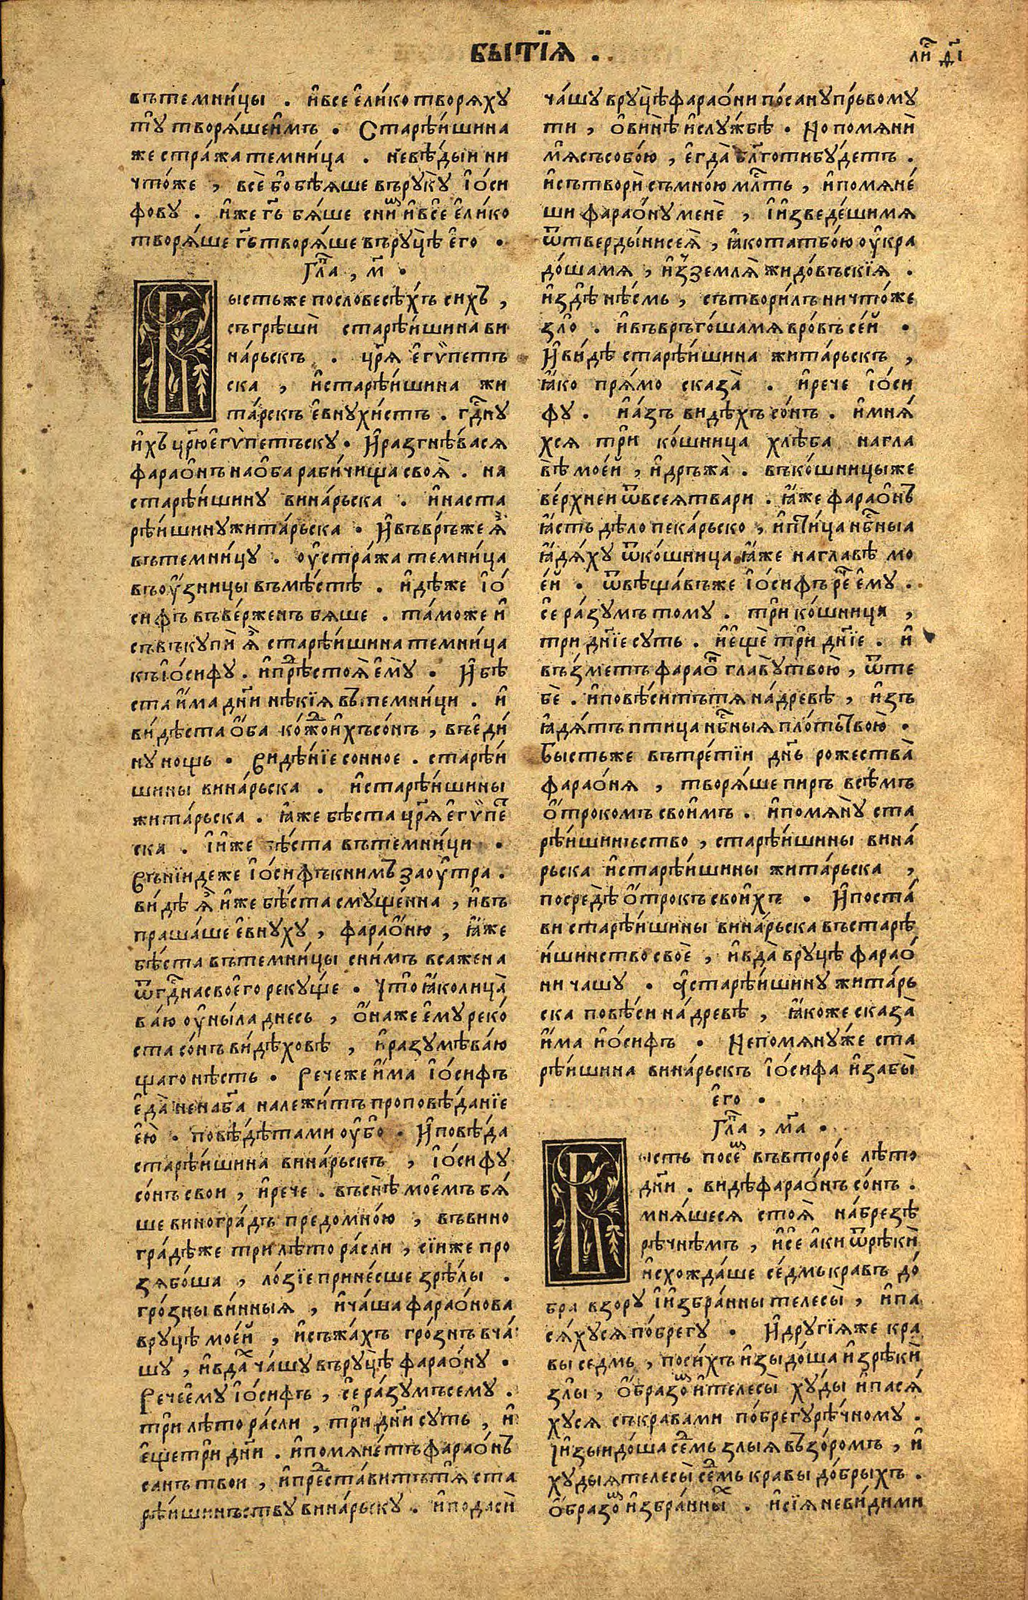 БЫТЇѦ .
ли́ , д҃і
вътемни́цы . и҆все е҆лико творѧ́ху
тꙋ творѧ́шеи҆мъ . Старѣ́ишина
же стра́жа темница . невѣ́дыи ни
что́же , всѐ бо бѣ́ѧше въ рꙋ́кꙋ і҆ѡ́си
фовꙋ . и҆же гь҃ бѧ́ше сни́ и҆все е҆лико
творѧ́ше гь҃ творѧ́ше в рꙋцѣ е҆го .
Гл҃а , м҃ .
ыстьже пословесѣ́хъ сихъ ,
съгрѣшѝ старѣ́ишина ви
на́рьскъ . цр҃ѧ е҆гѵ́петъ
ска , и҆старѣ́ишина жи
та́рскъ е҆внꙋхи́стъ . гд҃нꙋ
и҆хъ цр҃ю е҆гѵ́петъскꙋ . И҆разгнѣ́васѧ
фараѡ́нъ на ѻ҆ба раби́чища своѧ̀ . на
старѣ́ишинꙋ вина́рьска . и҆наста
рѣ́ишинꙋ жита́рьска . И҆въвръ́же ѧ҆̀
вътемни́цꙋ . оу҆стра́жа темница
въ оу҆́зницы въмѣ́стѣ . и҆дѣ́же і҆ѡ́
сифъ въве́рженъ бѧше . та́може и҆
съвъкꙋпѝ ѧ҆̀ старѣ́ишина темни́ца
къ і҆ѡ́сифꙋ . и҆прⷣестоѧ̀ е҆мꙋ̀ . И҆бѣ
ста и҆́ма дн҃и нѣ́кїѧ въ темни́ци . и҆
ви́дѣста ѻ҆́ба ко́жⷣо и҆́хъ со́нъ , въ е҆ди́
нꙋ нощь . Видѣ́нїе со́нное . старѣ́и
шины вина́рьска . и҆старѣ́ишины
жита́рьска . ꙗ҆́же бѣ́ста цр҃ѧ̀ е҆гѵ́пеⷮ
ска . і҆и҆же бѣ́ста вътемни́ци .
Въни́иде же і҆ѡ́сифъ к нимъ заоу́тра .
ви́дѣ ѧ҆̀ и҆́же бѣ́ста смꙋще́нна , и҆въ
праша́ше е҆внꙋ́хꙋ , фараѡ́ню , ꙗ҆́же
бѣ́ста вътемни́цы сни́мъ всажена
ѿ гд҃на своего рекꙋ́ще . Что̀ ꙗ҆́ко лица̀
ва́ю оу҆ны́ла днесь , ѻ҆́на же е҆мꙋ реко́
ста со́нъ ви́дѣховѣ , и҆разꙋмѣ́ваю
щаго нѣ́сть . Рече же и҆́ма і҆ѡ́сифъ
е҆да̀ не наб҃а належи́тъ проповѣ́данїе
е҆ю̀ . повѣ́дѣта ми оу҆́бо . И҆повѣ́да
старѣ́ишина вина́рьскъ , і҆ѡ́сифꙋ
со́нъ свои , и҆рече . въ снѣ̀ мое́мъ бѧ́
ше вингра́дъ предомно́ю , въ вино
гра́дѣ же три лѣ́торасли , сїи́же про
зѧбо́ша , ло́зїе прине́сше зрѣ́лы .
гро́зны ви́нныѧ , и҆ча́ша фараѡ́нова
врꙋцѣ мое́й , и҆съжа́хъ гро́знъ вча́
шꙋ , и҆вда́хъ ча́шꙋ въ рꙋцѣ фараѡ́нꙋ .
Рече е҆мꙋ і҆ѡ́сифъ , се ра́зꙋмъ семꙋ .
три лѣ́торасли , три дн҃и сꙋть , и҆
е҆ще три дн҃и . и҆помѧне́тъ фараѡ́нъ
санъ твои , и҆прⷣеста́витъ тѧ̀ ста
рѣ́ишиньствꙋ вина́рьскꙋ . и҆подасѝ
ча́шꙋ врꙋцѣ фараѡ́ни по са́нꙋ пръ́вомꙋ
ти , ѻ҆ винѣ̀ и҆слꙋ́жбѣ . Но помѧнѝ
мѧ съ собо́ю , е҆гда̀ бл҃го ти бꙋ́детъ .
и҆сътворѝ съ мно́ю млⷭ҇ть , и҆помѧне́
ши фараѡ́нꙋ менѐ , і҆и҆зведе́ши мѧ
ѿ тверды́ни сеѧ̀ , ꙗ҆́ко татбо́ю оу҆кра
до́ша мѧ , и҆ ꙁ землѧ̀ жидо́въскїѧ .
и҆здѣ нѣ́смь , сътвори́лъ ничто́же
зло̀ . и҆въвръго́ша мѧ в ро́въ се́й .
И҆ви́дѣ старѣ́ишина жита́рьскъ ,
ꙗ҆́ко прѧ́мо сказа̀ . и҆рече і҆ѡ́си
фꙋ . и҆а҆́зъ ви́дѣхъ со́нъ . и҆мнѧ́
хсѧ три ко́шница хлѣ́ба на гла
вѣ мое́й , и҆дръжа̀ . въ ко́шницы же
ве́рхнеи ѿ всеѧ тва́ри . ꙗ҆́же фараѡ́нъ
ꙗ҆́сть дѣ́ло пека́рьско , и҆пти́ца нбⷭ҇ныа
ꙗ҆дѧ́хꙋ ѿ ко́шница ꙗ҆́же на главѣ мо
е́й . ѿвѣща́въ же і҆ѡ́сифъ ре҇ е҆мꙋ .
се ра́зꙋмъ томꙋ . три ко́шница ,
три дн҃їе сꙋть . и҆е҆щѐ три дн҃їе . и҆
въ́зметъ фараѡ́ⷩ главꙋ твою , ѿ те
бѐ . и҆повѣ́ситъ тѧ на́ древѣ , и҆зъ
ꙗ҆дѧ́тъ птица нбⷭ҇ныѧ пло́ть твою̀ .
Бысть же въ тре́тїи днь҃ рожества̀
фараѡ́нѧ , творѧ́ше пиръ всѣ́мъ
ѻ҆́трокомъ свои́мъ . и҆помѧнꙋ̀ ста
рѣ́ишиньство , старѣ́ишины вина́
рьска и҆старѣ́ишины жита́рьска ,
посредѣ̀ ѻ҆́трокъ свои́хъ . И҆поста́
ви старѣ́ишины вина́рьска въ старѣ́
и҆шинство своѐ , и҆вда̀ в рꙋцѣ фараѡ́
ни чашꙋ . а҆старѣ́ишинꙋ жита́рь
ска повѣ́си на́ древѣ , ꙗ҆́коже сказа̀
и҆́ма и҆ѡ́сифъ . Не помѧнꙋ́ же ста
рѣ́ишина вина́рьскъ і҆ѡ́сифа и҆забы̀
е҆го .
Гл҃а , м҃а .
ысть посе́ въ второ́е лѣ́то
дн҃и . ви́дѣ фараѡ́нъ со́нъ .
мнѧ́шесѧ стоѧ̀ на́ брезѣ
рѣ́чнѣмъ , и҆се́ а҆́ки ѿ рѣкѝ
и҆схожда́ше се́дмь кра́въ до́
бра взорꙋ і҆и҆збра́нны телесы , и҆па
сѧ́хꙋсѧ по́ брегꙋ . И҆дрꙋгїѧ́же кра́
вы се́дмь , по си́хъ и҆зыдо́ша и҆з рѣкѝ
злы , ѻ҆́бразоⷨ и҆телесы̀ хꙋ́ды и҆пасѧ́
хꙋсѧ съ кра́вами по́ брегꙋ рѣ́чномꙋ .
і҆и҆зыдо́ша се́дмь злыѧ въ зо́ромъ , и҆
хꙋды́ѧ телесы̀ се́дмь кра́вы до́брыхъ .
ѻ҆́бразоⷨ и҆збра́нныⷯ . и҆сїѧ̀ неви́дими